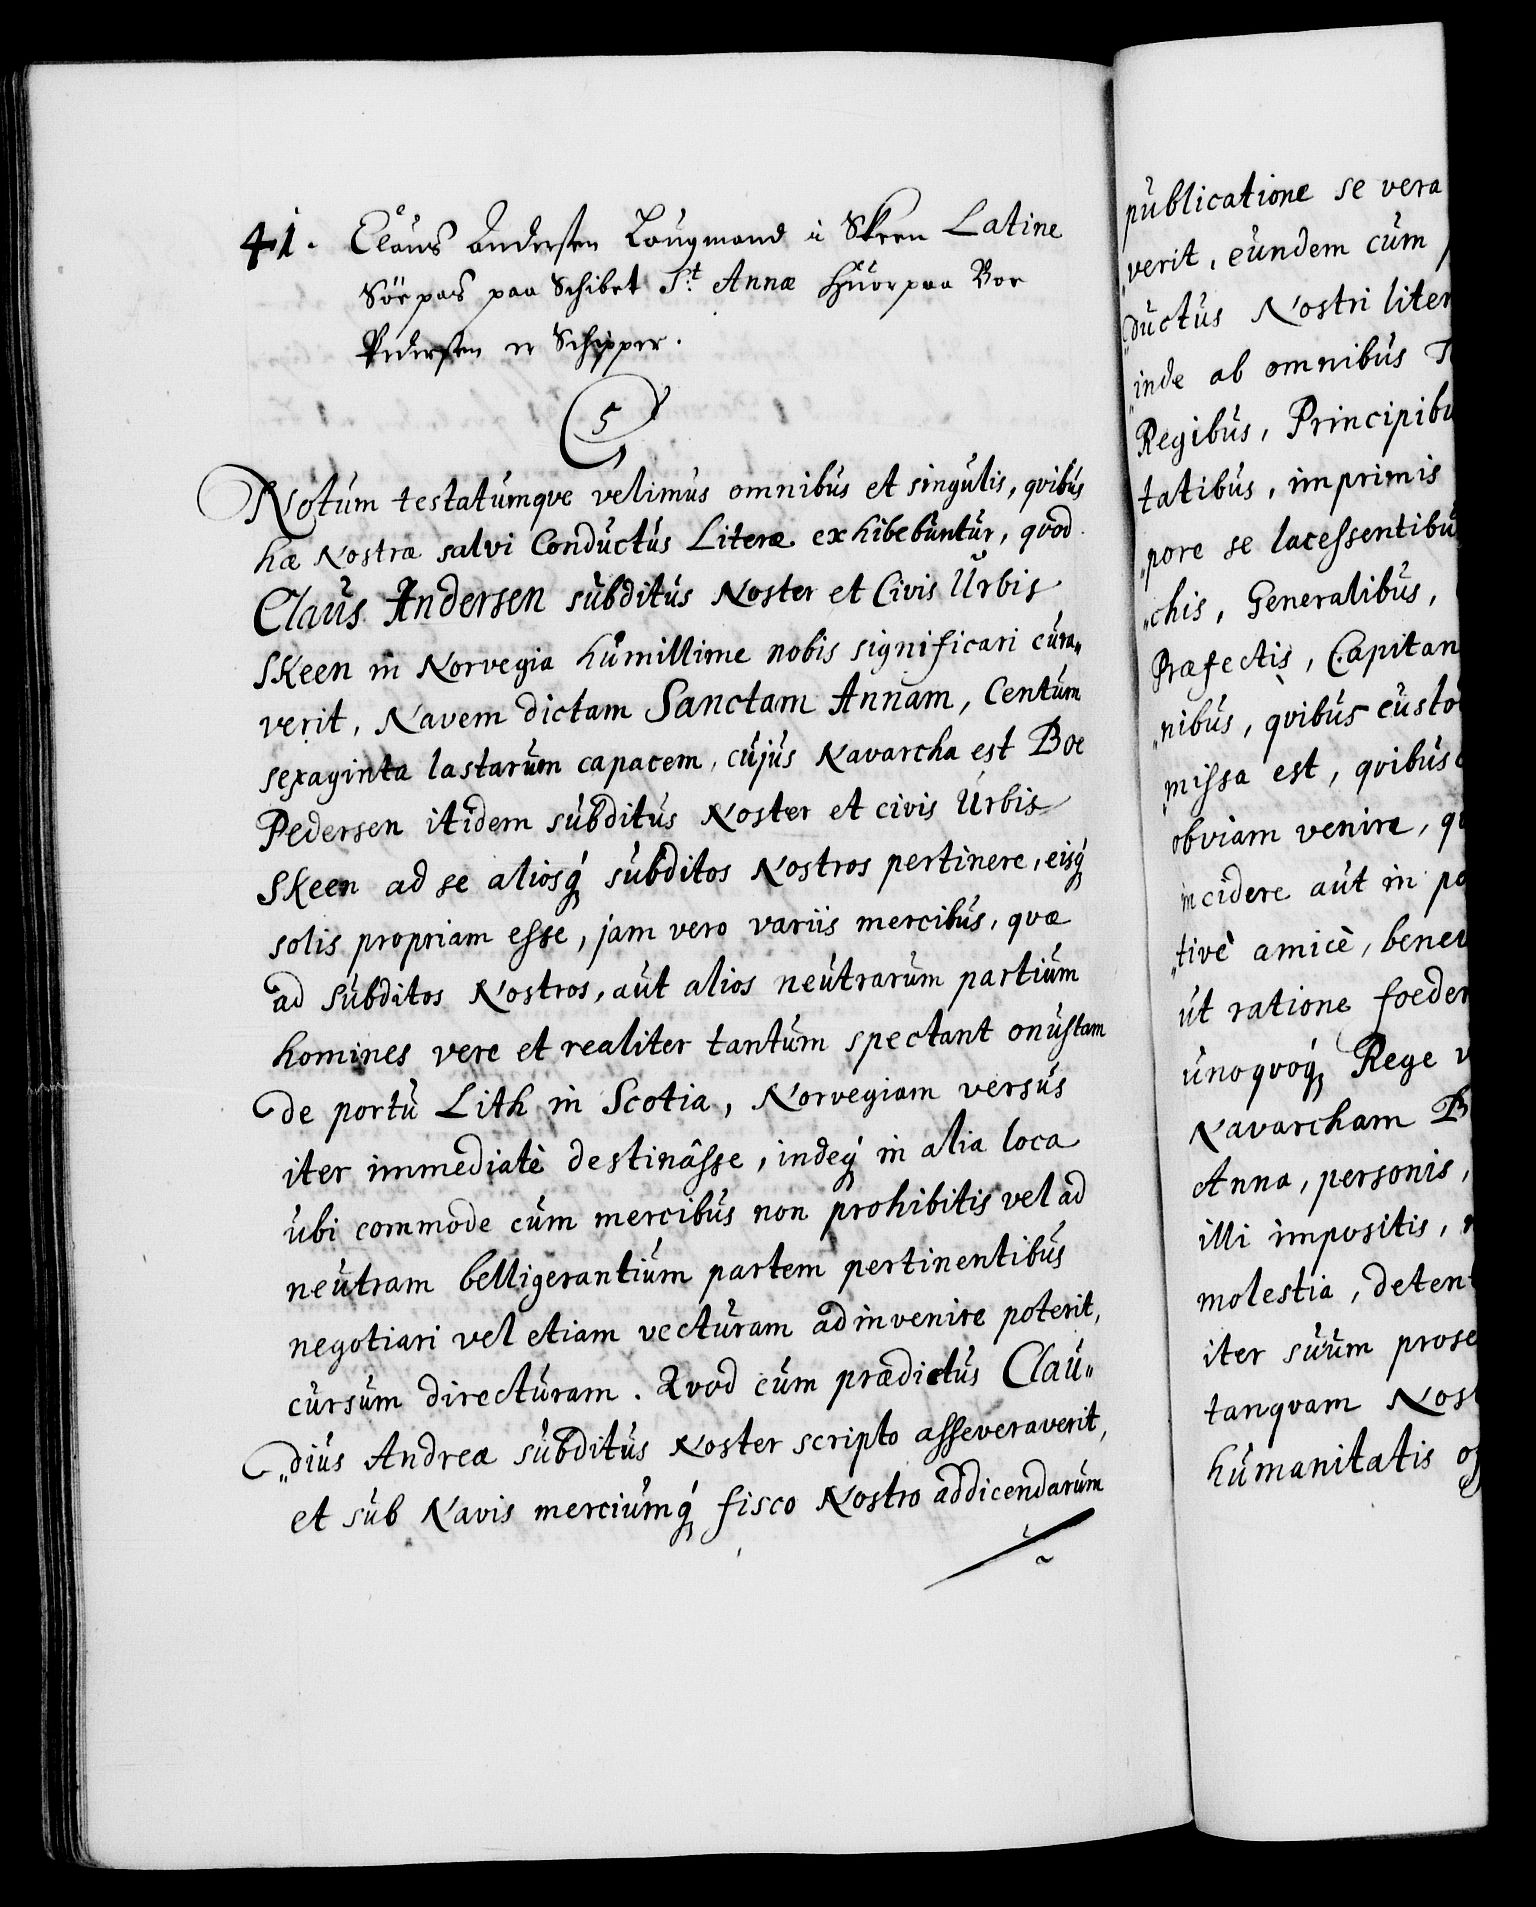 41. Claus Andersen Laugmand i Skeen Latine
Söe pas paa Schibet St Annæ Huorpaa Boe
Pedersen er Schipper.
5
Notum testatumqve velimus omnibus et singulis, qvibus
hæ Nostræ salvi Conductus Literæ exhibebuntur, qvod
Claus Andersen subditus Noster et Civis Urbis
Skeen in Norvegia humillime nobis significari cura„
verit, Navem dictam Sanctam Annam, Centum
sexaginta lastarum capacem, cujus Navarcha est Boe
Pedersen itidem subditus Noster et civis Urbis
Skeen ad se aliosq́ subditos Nostros pertinere, eisq́
solis propriam esse, jam vero variis mercibus, qvæ
ad Subditos Nostros, aut alios neutrarum partium
homines vere et realiter tantum spectant onustam
de portu Lith in Scotia, Norvegiam versus
iter immediatè destinâsse, indeq́ in alia loca
ubi commode cum mercibus non prohibitis vel ad
neutram belligerantium partem pertinentibus
negotiari vel etiam vecturam adinvenire poterit,
cursum directuram. Qvod cum prædictus Clau„
„dius Andreæ subditus Noster scripto asseveraverit,
et sub Navis merciumq́ fisco Nostro addicendarum
publicatione se vera
verit, eundem cum
ductus Nostri liter
inde ab omnibus
Regibus, Principibu
tatibus, imprimis
„pore se lacessentibu
„chis, Generalibus,
Præfectis, Capitan
„nibus, qvibus custo
„missa est, qvibus
obviam venire, qv
incidere aut in po
„tivè amicè, benev
ut ratione foeder
unoqvoq́ Rege v
Navarcham B
Anna, personis,
illi impositis,
molestia, detent
iter suum prose
tanqvam Nost
humanitatis of